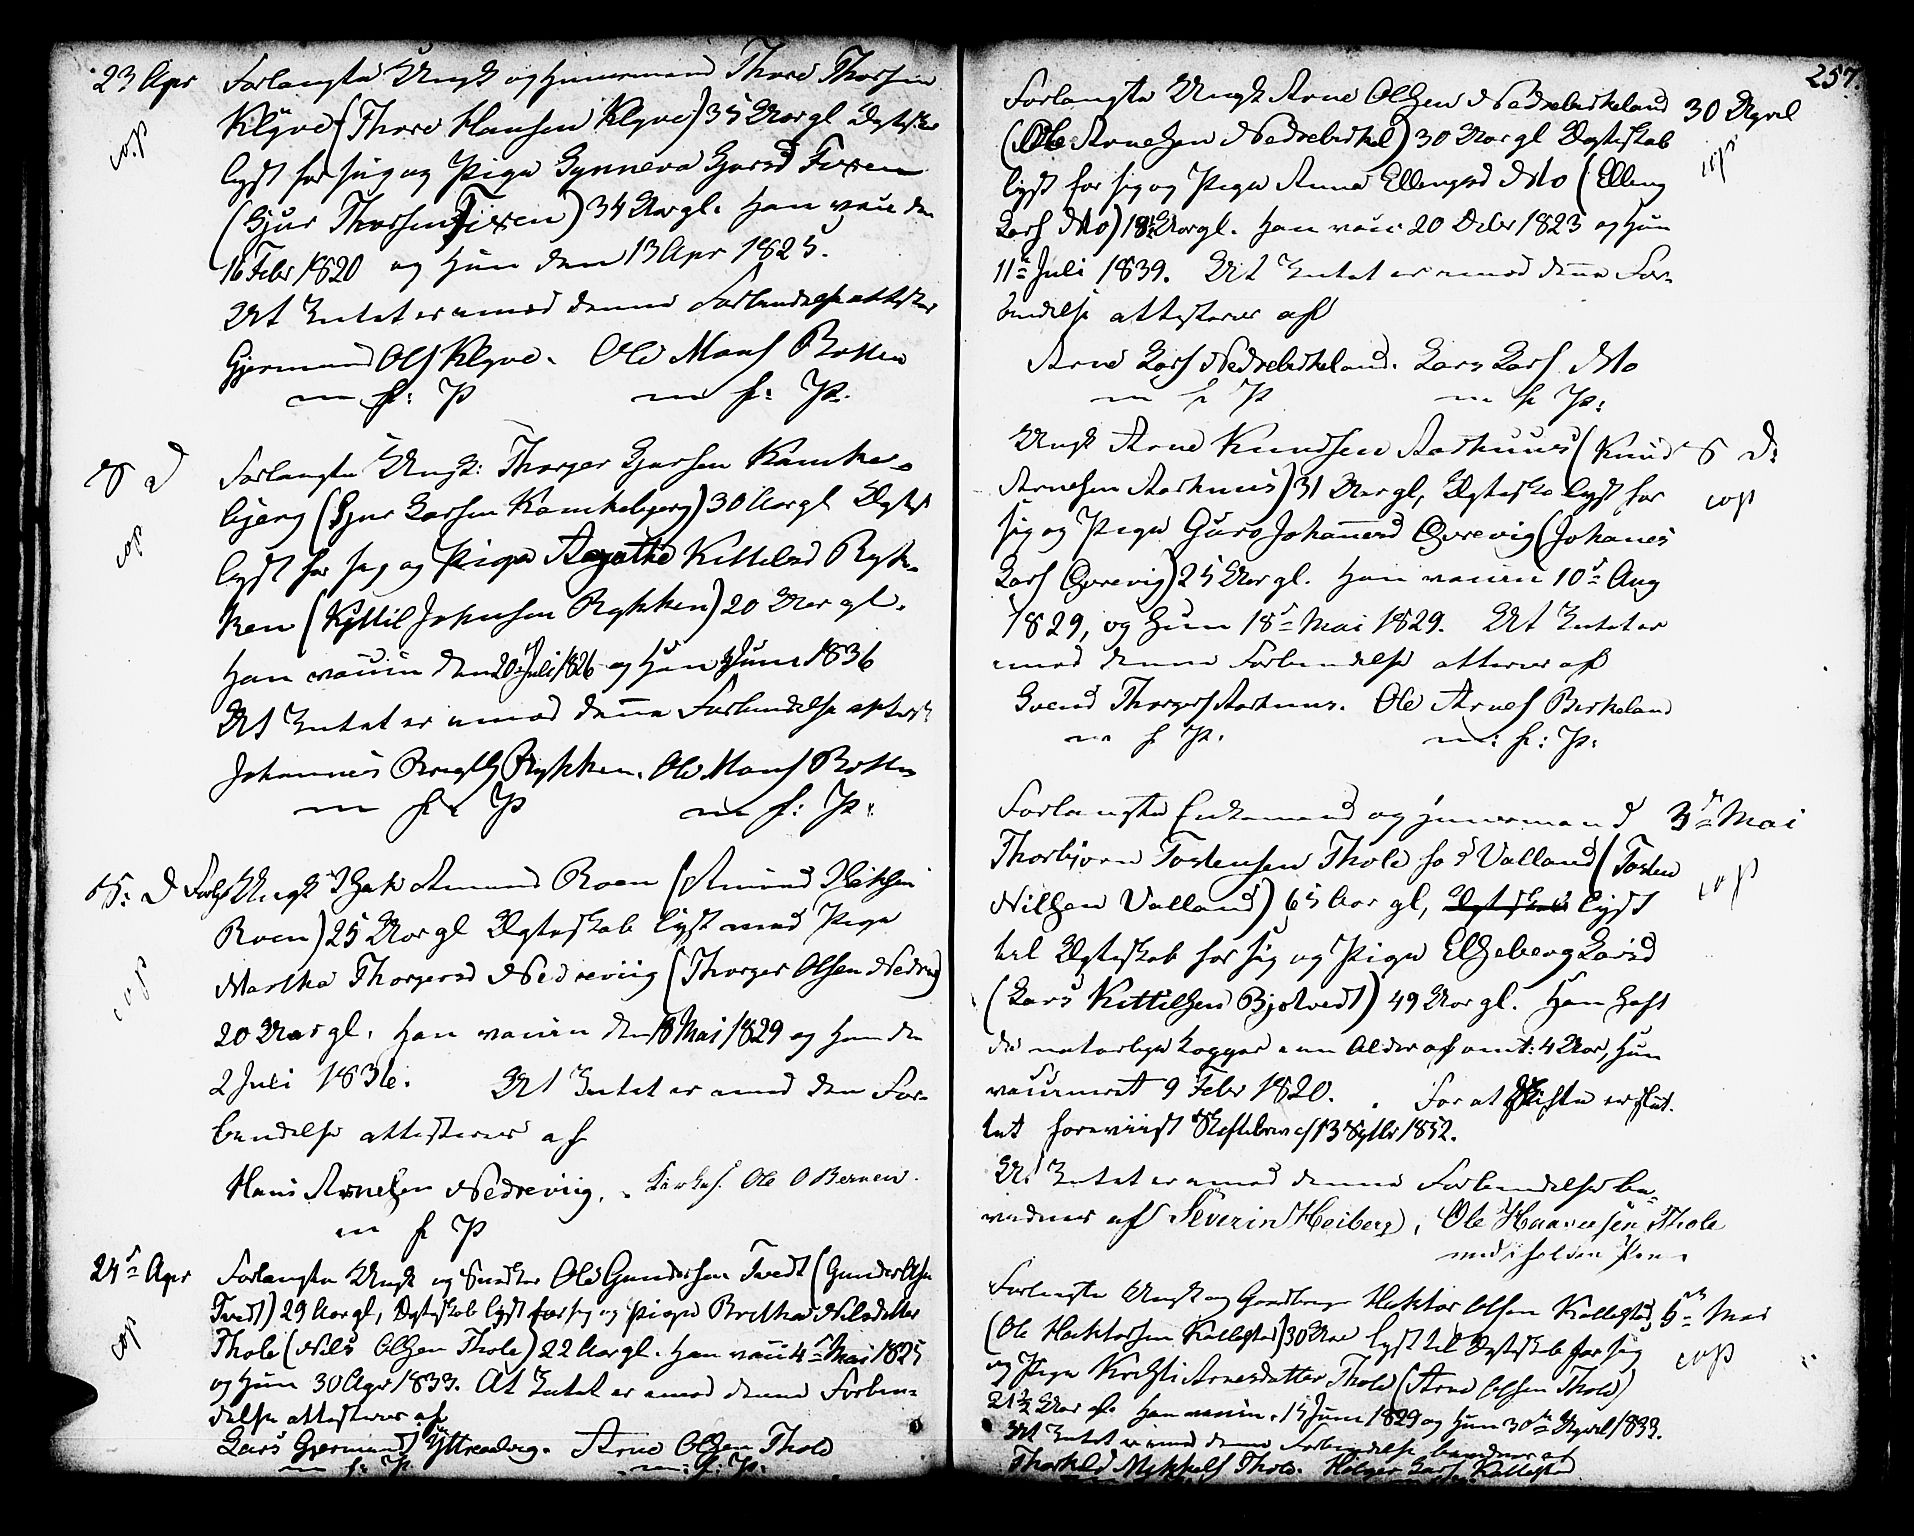 23 Apr Forlangte Ungk og Huusmand Thore Thorsen
cop Klyve (Thore Hansen Klyve) 35 Aar gl Ægtesk
lyst for sig og Pigen Synneva Gjursd Fixen
(Gjur Thorsen Fixen) 34 Aar gl. Han vacc den
16 Febr 1820 og Hun den 13 Apr 1825.
At Intet er imod denne Forbindelse attester
Gjermund Ols Klyve. Ole Mons Botten
m f: P m f: P.
S D Forlangte Ungk: Thorger Gjursen Kamke-
bjerg (Gjur Larsen Kamkebjerg) 30 Aar gl Ægtesk
cop lyst for sig og Pigen Aagathe Kittilsd Ryk-
ken (Kjttil Johnsen Rykken) 20 Aar gl.
Han vaccin den 20 Juli 1826 og Hun Juni 1836
At Intet er imod denne Forbindelse attest
Johannes Rykken. Ole Mons Botten
m f: P m f: P:
S: D Forl Ungk Isak Amund Roen (Amund Isaksen
Roen) 25 Aar gl Ægteskab lyst med Pigen
cop Martha Thorgersd Nedreviig (Thorger Olsen Nedrev)
20 Aar gl. Han vaccin den 18 Mai 1829 og Hun den
2 Juli 1836. At Intet er imod den For-
bindelse attesterer af
Hans Arnesen Nedreviig. Ole O Bernen.
m f P
24de Apr Forlangte Ungk og Ole Gundersen Tvedt (Gunder Olsen
Tvedt) 29 Aar gl, Ægteskab lyst for sig og Pigen Bretha Nilsdatter
cop Thole (Nils Olsen Thole) 22 Aar gl. Han vacc 4de Mai 1825
og Hun 30 Apr 1833. At Intet er imod denne Forbin-
delse attesterer af
Lars Gjermunds Yttreodvig. Arne Olsen Thole
m: f: P. m: f: P:
257.
Forlangte Ungk Arne Olsen Nedrebirkeland 30 April
(Ole Arnesen Nedrebirkel) 30 Aar gl Ægteskab
lyst for sig og Pigen Anna Ellingsd Mo (Elling cop
Lars Mo) Aar gl. Han vacc 20 Decbr 1823 og Hun
11te Juli 1839. At Intet er imod denne For-
bindelse attesterer af
Arne Lars Nedrebirkeland. Lars Lars Mo
m f P m f P:
Ungk Arne Knudsen Aarhuus (Knud S D:
Arnesen Aarhuus) 31 Aar gl, Ægteskab lyst for cop
sig og Pigen Guro Johannesd Qvrevig (Johanes
Lars Qvrevig) 25 Aar gl. Han vaccin 10de Aug
1829, og Hun 18de Mai 1829. At Intet er
imod denne Forbindelse atterer af
Svend Thorgers Aarhuus. Ole Arnes Birkeland
m f P. m: f: P:
Forlangte Enkemand og Huusmand 3de Mai
Thorbjorn Tostensen Thole fød Valland (Tosten
Nilsen Valland) 65 Aar gl, Ægteskab lyst cop
til Ægteskab for sig og Pigen Elseberg Larsd
(Lars Kittilsen Bjotvedt) 49 Aar gl. Han haft
de naturlige Kopper i en Alder af omt: 4 Aar, Hun
vaccineret 9 Febr 1820. For at Skiftet er slut-
tet foreviist Skiftebrev af 13 Septbr 1852.
At Intet er imod denne Forbindelse be-
vidner af Severin Heiberg, Ole Haaversen Thole
med iholden Pen.
Forlangte Ungk og Haktor Olsen Kallestad, 5te Mai
(Ole Haktorsen Kallestad) 30 Aar lyst til Ægteskab for sig
og Pigen Kristi Arnesdatter Thole (Arne Olsen Thole) cop
21½ Aar gl. Han vaccin. 15 Juni 1829 og Hun 30te April 1833.
At Intet er imod denne Forbindelse bevidner af
Thorkild Mikkels Thole. Holger Lars Kallestad